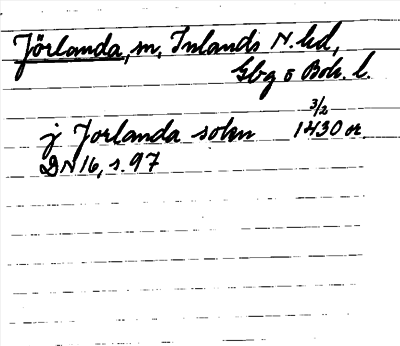 Jörlanda, sn, Inlands N. hd,
Gbg o Boh. l.
3/2
j Jorlanda sokn 1430 or.
DN 16, s. 97